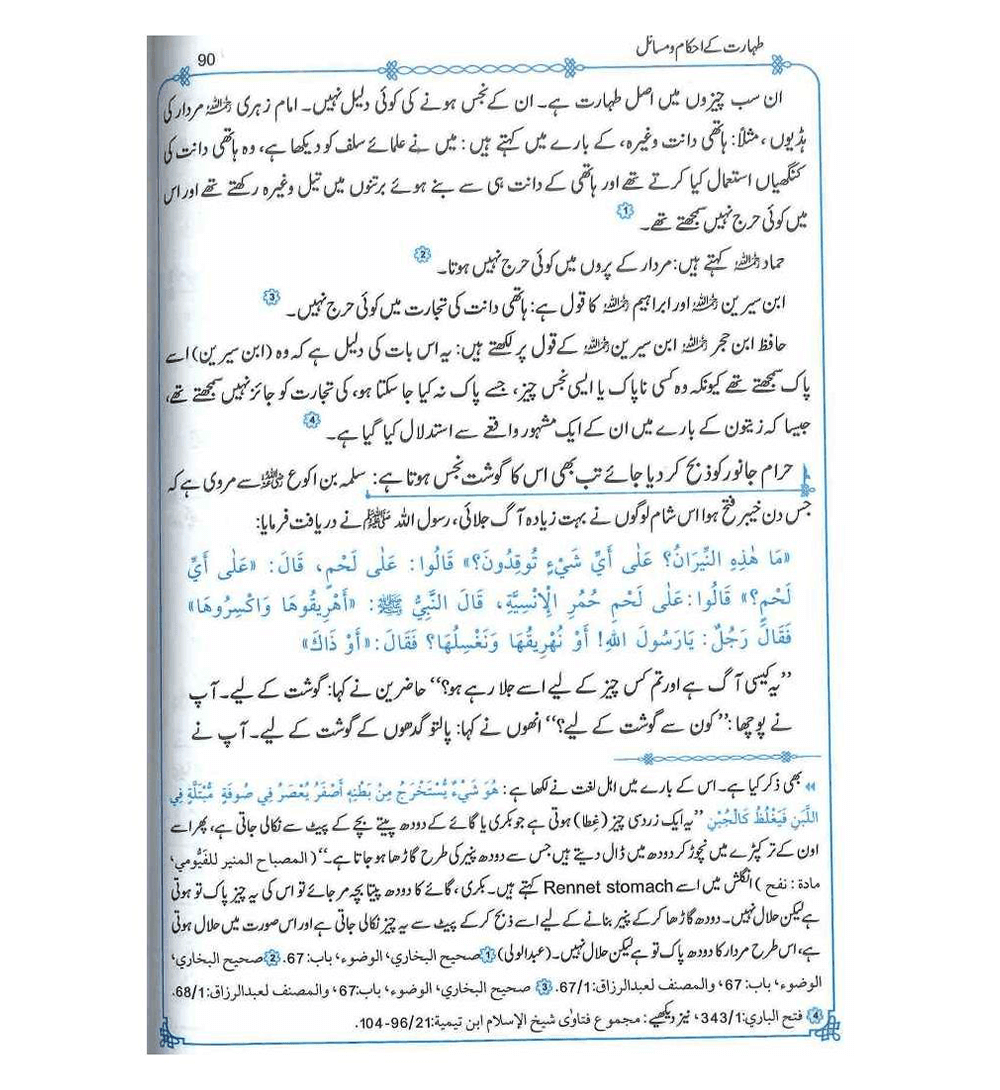 طہارت کے احکام و مسائل
90
ان سب چیزوں میں اصل طہارت ہے۔ ان کے نجس ہونے کی کوئی دلیل نہیں۔ امام زہری رحمہ اللہ مردار کی
ہڈیوں، مثلاً: ہاتھی دانت وغیرہ، کے بارے میں کہتے ہیں: میں نے علمائے سلف کو دیکھا ہے، وہ ہاتھی دانت کی
کنگھیاں استعمال کیا کرتے تھے اور ہاتھی کے دانت ہی سے بنے ہوئے برتنوں میں تیل وغیرہ رکھتے تھے اور اس
میں کوئی حرج نہیں سمجھتے تھے۔ 1
حماد رحمہ اللہ کہتے ہیں: مردار کے پروں میں کوئی حرج نہیں ہوتا۔ 2
ابن سیرین رحمہ اللہ اور ابراہیم رحمہ اللہ کا قول ہے: ہاتھی دانت کی تجارت میں کوئی حرج نہیں۔ 3
حافظ ابن حجر رحمہ اللہ ابن سیرین رحمہ اللہ کے قول پر لکھتے ہیں: یہ اس بات کی دلیل ہے کہ وہ (ابن سیرین) اسے
پاک سمجھتے تھے کیونکہ وہ کسی ناپاک یا ایسی نجس چیز، جسے پاک نہ کیا جا سکتا ہو، کی تجارت کو جائز نہیں سمجھتے تھے،
جیسا کہ زیتون کے بارے میں ان کے ایک مشہور واقعے سے استدلال کیا گیا ہے۔ 4
حرام جانور کو ذبح کر دیا جائے تب بھی اس کا گوشت نجس ہوتا ہے: سلمہ بن اکوع رضی اللہ عنہ سے مروی ہے کہ
جس دن خیبر فتح ہوا اس شام لوگوں نے بہت زیادہ آگ جلائی، رسول اللہ ﷺ نے دریافت فرمایا:
«مَا هٰذِهِ النِّيرَانُ؟ عَلٰى أَيِّ شَيْءٍ تُوقِدُونَ؟» قَالُوا: عَلٰى لَحْمٍ، قَالَ: «عَلٰى أَيِّ
لَحْمٍ؟» قَالُوا: عَلٰى لَحْمِ حُمُرِ الْإِنْسِيَّةِ، قَالَ النَّبِيُّ ﷺ: «أَهْرِيقُوهَا وَاكْسِرُوهَا»
فَقَالَ رَجُلٌ: يَارَسُولَ اللهِ! أَوْ نُهْرِيقُهَا وَنَغْسِلُهَا؟ فَقَالَ: «أَوْ ذَاكَ»
’’یہ کیسی آگ ہے اور تم کس چیز کے لیے اسے جلا رہے ہو؟‘‘ حاضرین نے کہا: گوشت کے لیے۔ آپ
نے پوچھا: ’’کون سے گوشت کے لیے؟‘‘ انھوں نے کہا: پالتو گدھوں کے گوشت کے لیے۔ آپ نے
بھی ذکر کیا ہے۔ اس کے بارے میں اہل لغت نے لکھا ہے: هُوَ شَيْءٌ يُسْتَخْرَجُ مِنْ بَطْنِهٖ أَصْفَرُ يُعْصَرُ فِي صُوفَةٍ مُبْتَلَّةٍ فِي
اللَّبَنِ فَيَغْلُظُ كَالْجُبْنِ ’’یہ ایک زرد سی چیز (غِطا) ہوتی ہے جو بکری یا گائے کے دودھ پیتے بچے کے پیٹ سے نکالی جاتی ہے، پھر اسے
اون کے تر کپڑے میں نچوڑ کر دودھ میں ڈال دیتے ہیں جس سے دودھ پنیر کی طرح گاڑھا ہو جاتا ہے۔‘‘ (المصباح المنير للفيومي،
مادة: نفح) انگلش میں اسے Rennet stomach کہتے ہیں۔ بکری، گائے کا دودھ پیتا بچہ مر جائے تو اس کی یہ چیز پاک تو ہوتی
ہے لیکن حلال نہیں۔ دودھ گاڑھا کر کے پنیر بنانے کے لیے اسے ذبح کر کے پیٹ سے یہ چیز نکالی جاتی ہے اور اس صورت میں حلال ہوتی
ہے، اس طرح مردار کا دودھ پاک تو ہے لیکن حلال نہیں۔ (عبدالولی) 1 صحيح البخاري، الوضوء، باب: 67. 2 صحيح البخاري،
الوضوء، باب: 67، والمصنف لعبدالرزاق: 67/1. 3 صحيح البخاري، الوضوء، باب: 67، والمصنف لعبدالرزاق: 68/1.
4 فتح الباري: 343/1، نیز دیکھیے: مجموع فتاوٰى شيخ الإسلام ابن تيمية: 96/21-104.